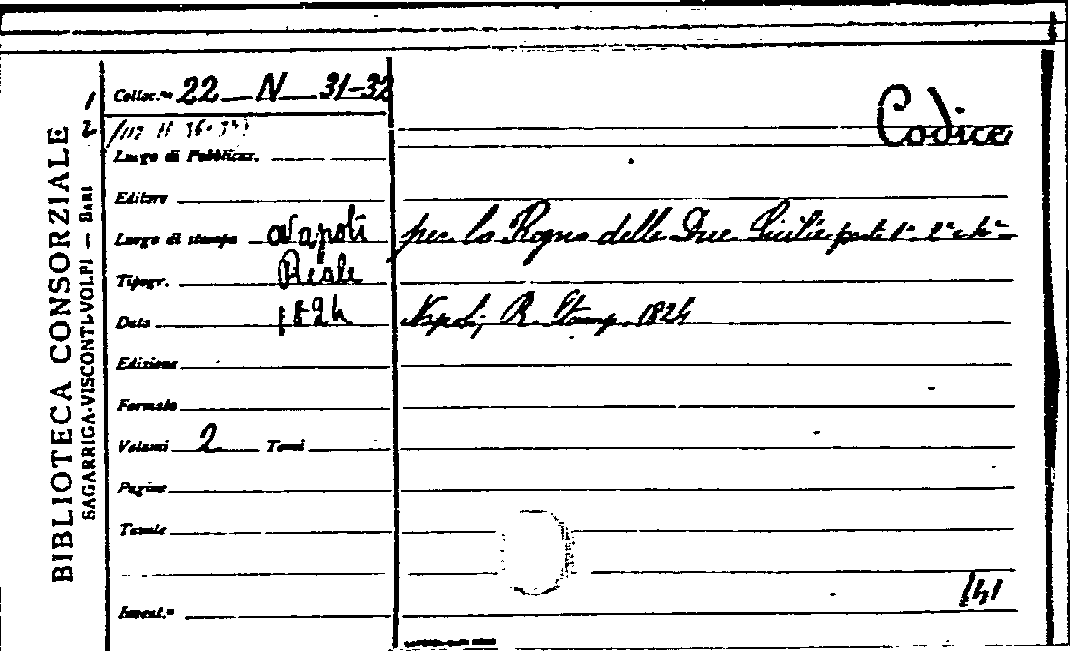 BIBLIOTECA CONSORZIALE
SAGARRIGA-VISCONTI-VOLPI — BARI
1
2
Colloc.ne 22 N 31-32
Codice
Luogo di Pubblicaz.
Editore
Luogo di stampa Napoli
per lo Regno delle Due Sicilie parte 1ª
Tipogr. Reale
Data 1824
Napoli, R. Stamp. 1824
Edizione
Formato
Volumi 2 Tomi
Pagine
Tavole
Invent.º